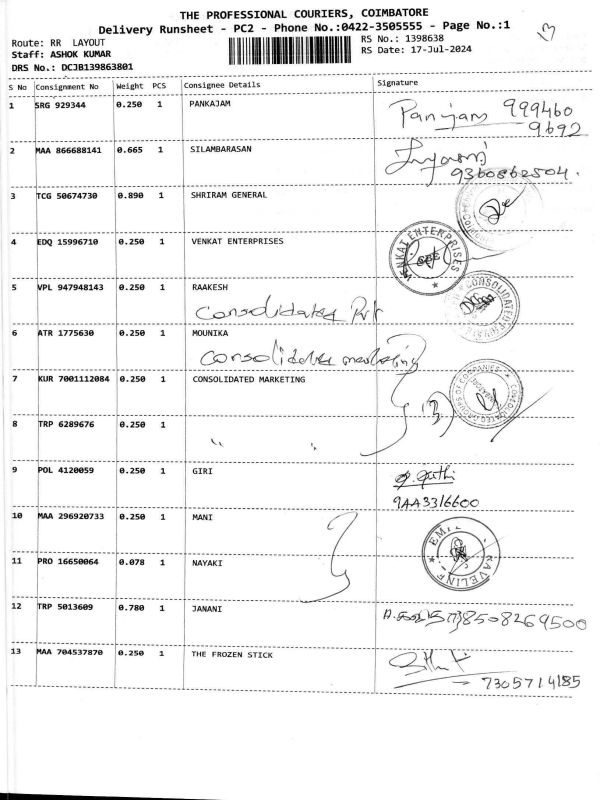 THE PROFESSIONAL COURIERS, COIMBATORE
Delivery Runsheet - PC2 - Phone No.:0422-3505555 - Page No.:1
Route: RR LAYOUT
RS No.: 1398638
Staff: ASHOK KUMAR
RS Date: 17-Jul-2024
DRS No.: DCJB139863801
S No Consignment No Weight PCS Consignee Details Signature
1 SRG 929344 0.250 1 PANKAJAM
999460
9692
2 MAA 866688141 0.665 1 SILAMBARASAN
9360862504.
3 TCG 50674730 0.890 1 SHRIRAM GENERAL
4 EDQ 15996710 0.250 1 VENKAT ENTERPRISES
VENKAT ENTERPRISES
5 VPL 947948143 0.250 1 RAAKESH
Consolidated
6 ATR 1775630 0.250 1 MOUNIKA
Consolidated marketing
7 KUR 7001112084 0.250 1 CONSOLIDATED MARKETING
CONSOLIDATED GROUPS OF COMPANIES
8 TRP 6289676 0.250 1
" "
9 POL 4120059 0.250 1 GIRI
9AA3316600
10 MAA 296920733 0.250 1 MANI
11 PRO 16650064 0.078 1 NAYAKI
12 TRP 5013609 0.780 1 JANANI
8508269500
13 MAA 704537870 0.250 1 THE FROZEN STICK
7305714185